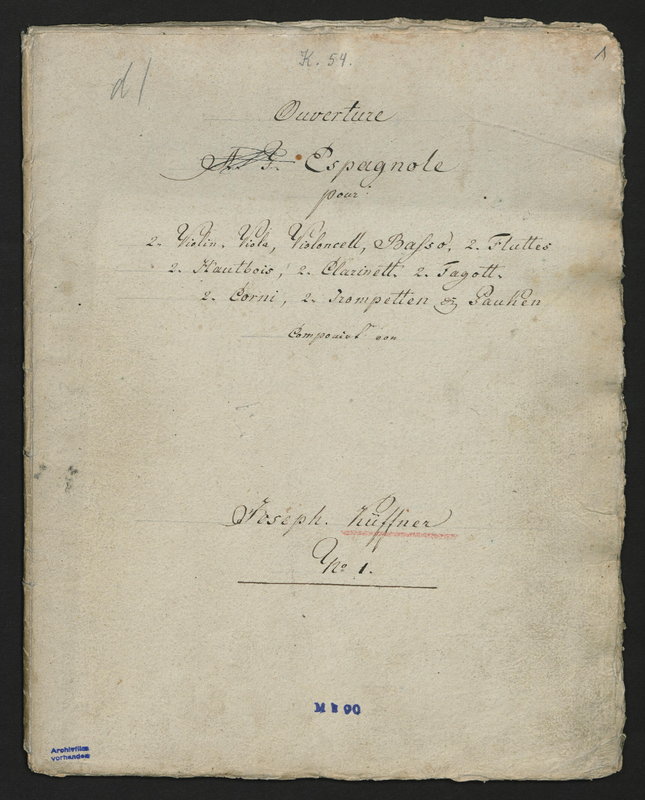 K. 54.
1
d/
Ouverture
Espagnole
pour
2. Violin. Viola, Violoncell, Basso, 2. Fluttes
2. Hautbois, 2. Clarinett. 2. Fagott.
2. Corni, 2. Trompetten & Pauken
von
Joseph. Küffner
No 1.
M 90
Archivfilm
vorhanden